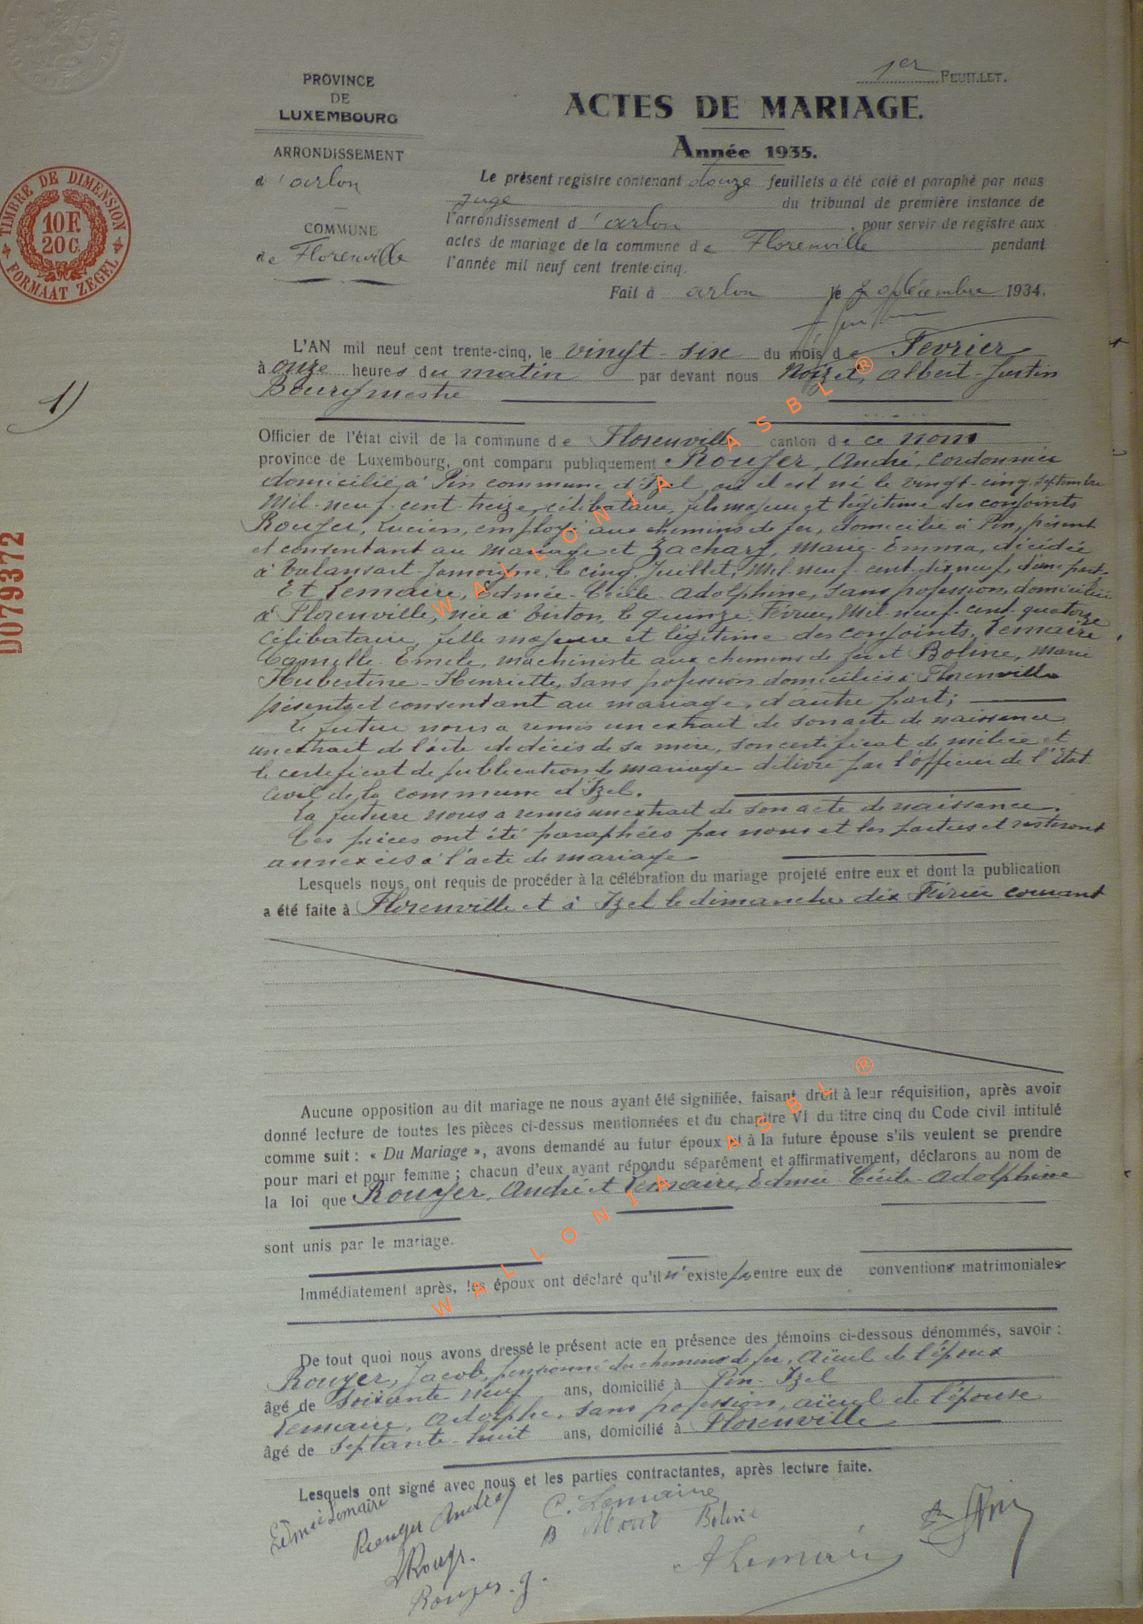 1er FEUILLET.
PROVINCE
DE
LUXEMBOURG
ACTES DE MARIAGE.
Année 1935.
ARRONDISSEMENT
d'arlon
COMMUNE
de Florenville
TIMBRE DE DIMENSION
10F.
20C.
FORMAAT ZEGEL
D079372
1)
Le présent registre contenant douze feuillets a été coté et paraphé par nous
juge du tribunal de première instance de
l'arrondissement d'arlon, pour servir de registre aux
actes de mariage de la commune de Florenville pendant
l'année mil neuf cent trente-cinq.
Fait à arlon le décembre 1934.
L'AN mil neuf cent trente-cinq, le vingt-six du mois de Février
à onze heures du matin par devant nous Noizet, Albert-Justin
Bourgmestre
Officier de l'état civil de la commune de Florenville canton de ce nom
province de Luxembourg, ont comparu publiquement Rouyer, André, cordonnier
domicilié à Pin commune d'Izel, où il est né le vingt-cinq septembre
Mil-neuf-cent-treize, célibataire, fils majeur et légitime des conjoints
Rouyer, Lucien, employé aux chemins de fer, domicilié à Pin, présent
et consentant au mariage et Zachary, Marie-Emma, décédée
à Valansart-Jamoigne, le cinq Juillet, Mil-neuf-cent-dix neuf, d'une part
Et Lemaire, Edmée-Cécile-Adolphine, sans profession, domiciliée
à Florenville, née à Virton, le quinze Février, Mil-neuf-cent-quatorze
célibataire, fille majeure et légitime des conjoints, Lemaire
Camille-Emile, machiniste aux chemins de fer et Bolline, Marie
Hubertine-Henriette, sans profession domiciliés à Florenville
présents et consentant au mariage, d'autre part;
Le futur nous a remis un extrait de son acte de naissance
un extrait de l'acte de décès de sa mère, son certificat de milice et
le certificat de publication de mariage délivré par l'officier de l'Etat
civil de la commune d'Izel.
La future nous a remis un extrait de son acte de naissance.
Ces pièces ont été paraphées par nous et les parties et resteront
annexées à l'acte de mariage
Lesquels nous ont requis de procéder à la célébration du mariage projeté entre eux et dont la publication
a été faite à Florenville et à Izel le dimanche dix Février courant
Aucune opposition au dit mariage ne nous ayant été signifiée, faisant droit à leur réquisition, après avoir
donné lecture de toutes les pièces ci-dessus mentionnées et du chapitre VI du titre cinq du Code civil intitulé
comme suit : « Du Mariage », avons demandé au futur époux et à la future épouse s'ils veulent se prendre
pour mari et pour femme ; chacun d'eux ayant répondu séparément et affirmativement, déclarons au nom de
la loi que Rouyer, André et Lemaire, Edmée-Cécile-Adolphine
sont unis par le mariage.
Immédiatement après, les époux ont déclaré qu'il n'existe pas entre eux de conventions matrimoniales
De tout quoi nous avons dressé le présent acte en présence des témoins ci-dessous dénommés, savoir :
Rouyer, Jacob, pensionné du chemins de fer, aïeul de l'époux
âgé de soixante neuf ans, domicilié à Pin-Izel
Lemaire, Adolphe, sans profession, aïeul de l'épouse
âgé de septante-huit ans, domicilié à Florenville
Lesquels ont signé avec nous et les parties contractantes, après lecture faite.
Edmée Lemaire
Rouyer André
C. Lemaire
L Rouyr.
Rouyer. J.
A Lemaire
WALLONIA ASBL ®
WALLONIA ASBL ®